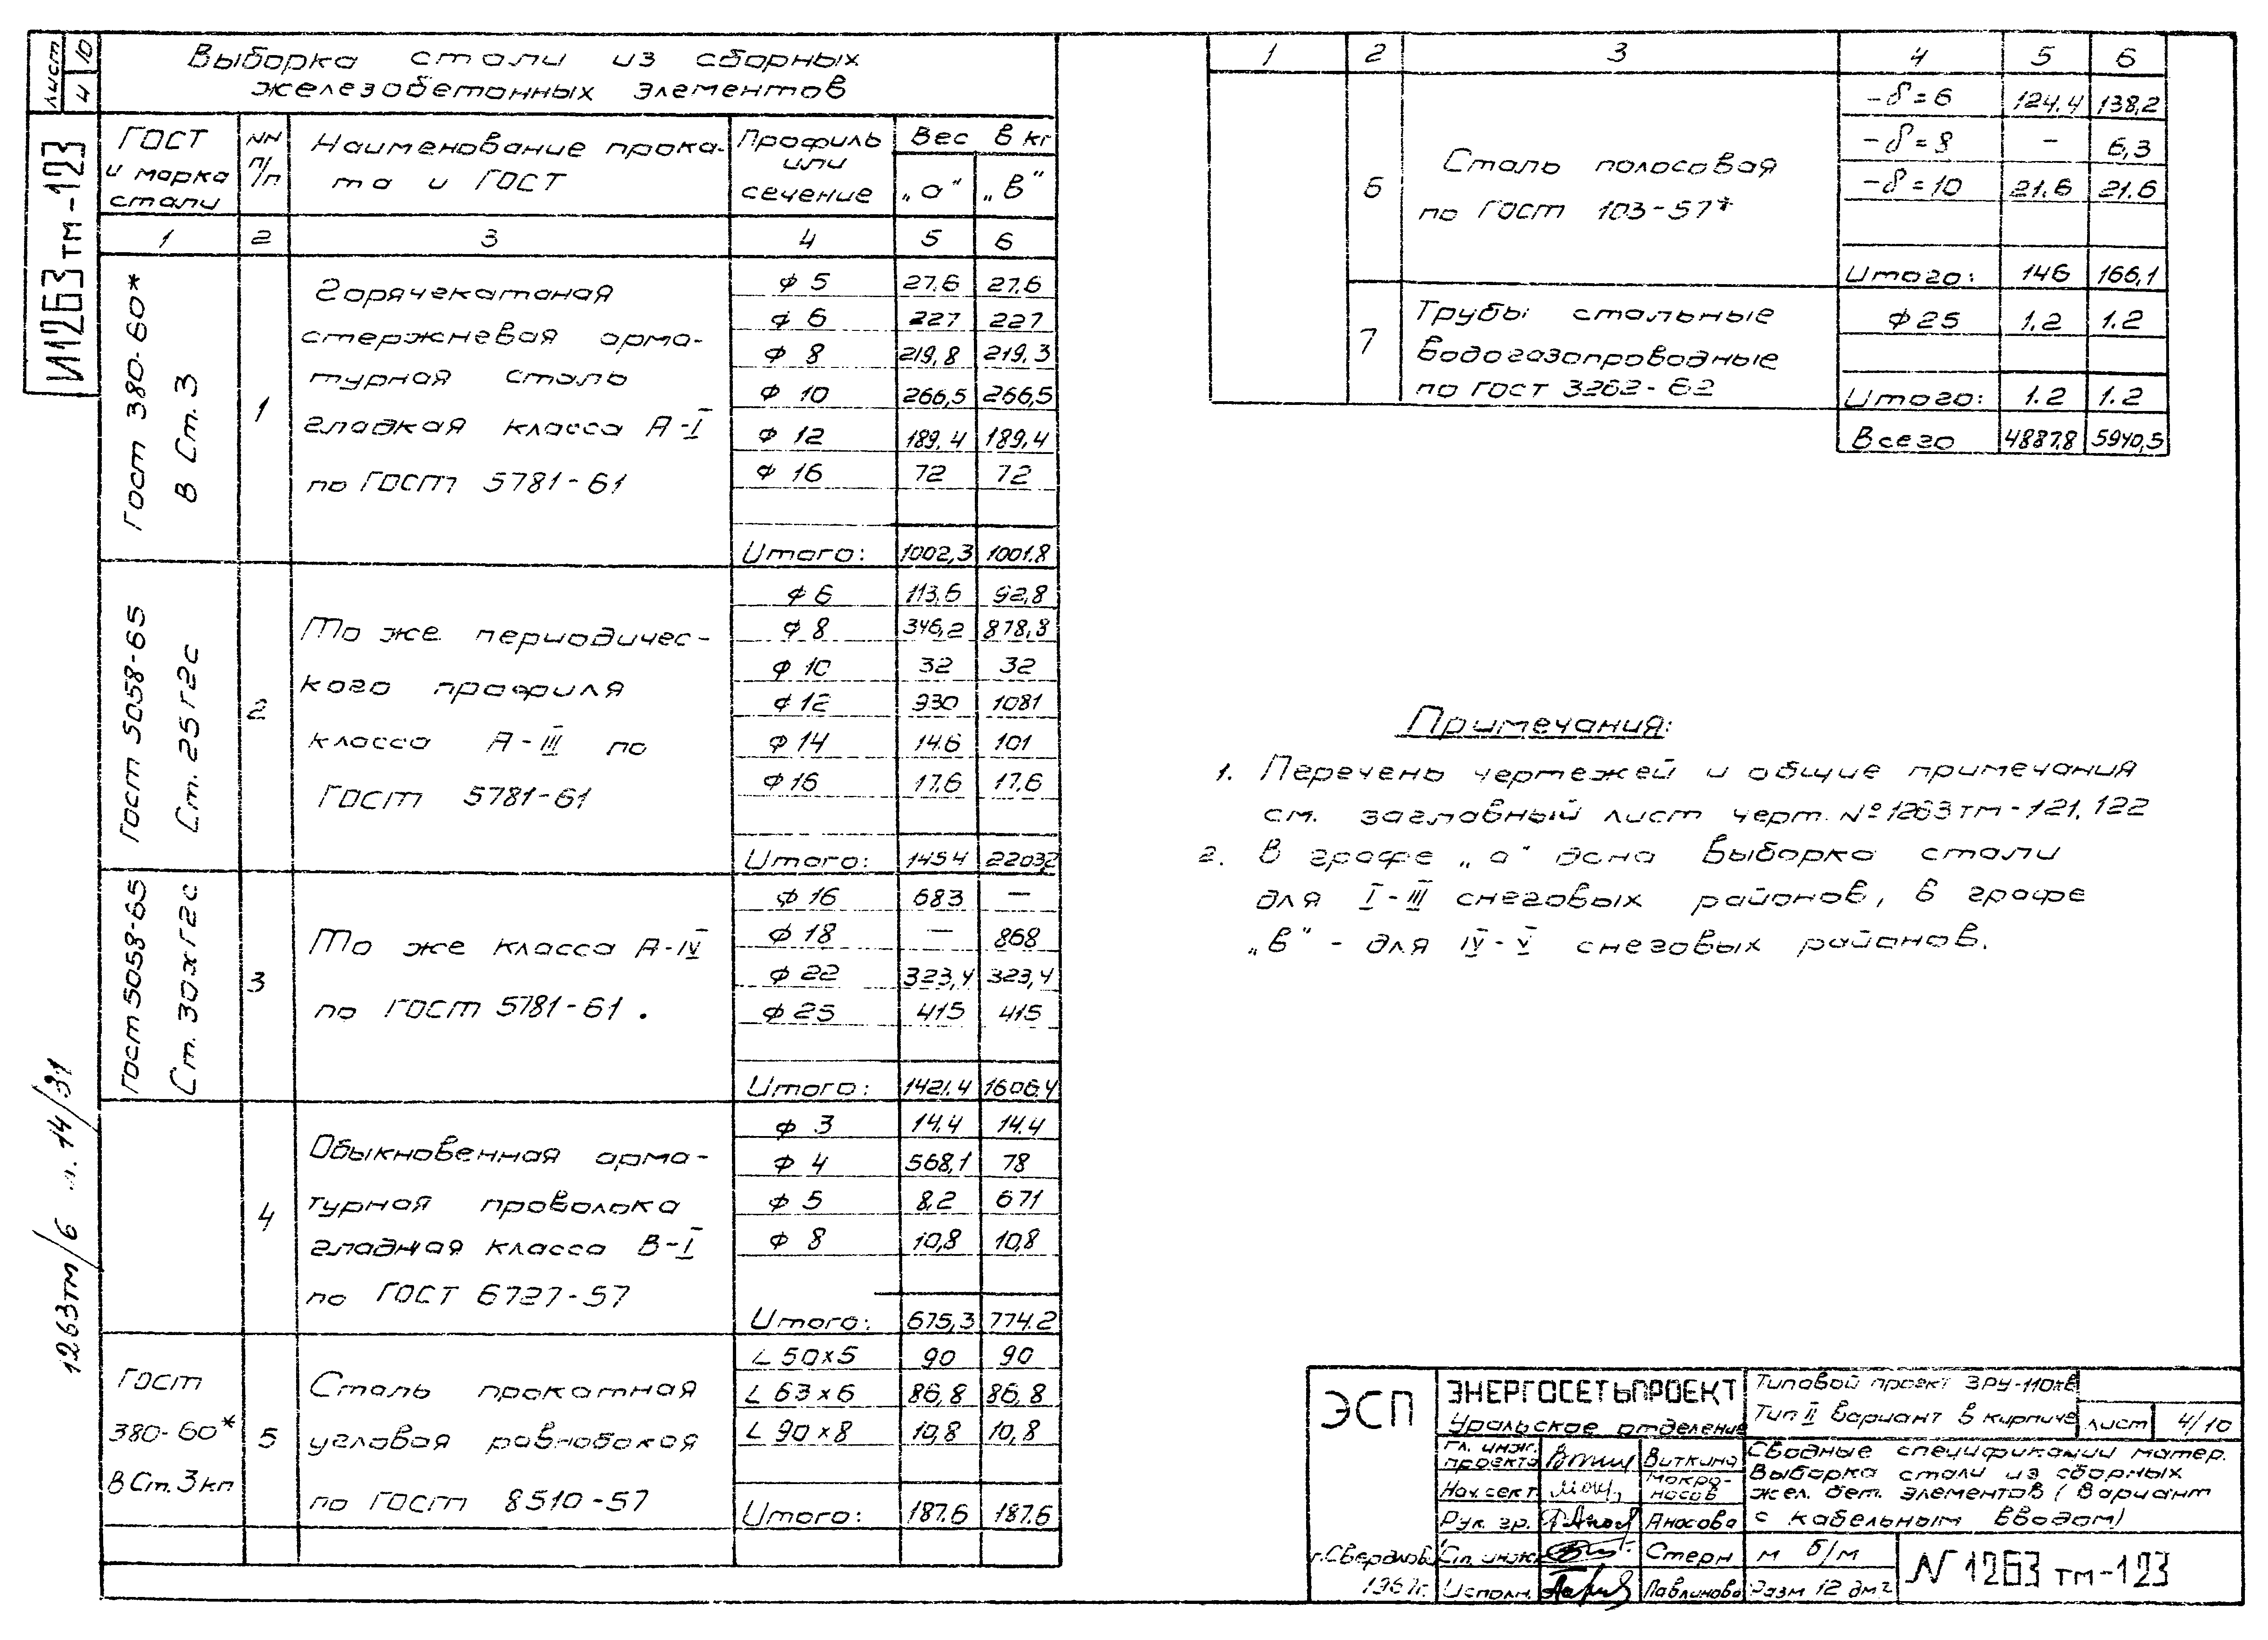 лист 4/10
И1263тм-123
1263тм/6 л. 14/31
Выборка стали из сборных
железобетонных элементов
ГОСТ и марка стали | NN п/п | Наименование проката и ГОСТ | Профиль или сечение | Вес в кг „а“ | „в“
1 | 2 | 3 | 4 | 5 | 6
Гост 380-60*
В Ст.3
1
Горячекатаная
стержневая арма-
турная сталь
гладкая класса А-I
по ГОСТ 5781-61
ф 5 | 27.6 | 27.6
ф 6 | 227 | 227
ф 8 | 219,8 | 219,3
ф 10 | 266,5 | 266,5
ф 12 | 189,4 | 189,4
ф 16 | 72 | 72
Итого: | 1002,3 | 1001.8
Гост 5058-65
Ст. 25Г2С
2
То же периодичес-
кого профиля
класса А-III по
ГОСТ 5781-61
ф 6 | 113.6 | 92,8
ф 8 | 346,2 | 878,8
ф 10 | 32 | 32
ф 12 | 930 | 1081
ф 14 | 14.6 | 101
ф 16 | 17.6 | 17.6
Итого: | 1454 | 2203,2
Гост 5058-65
Ст. 30хг2с
3
То же класса А-IV
по ГОСТ 5781-61.
ф 16 | 683 | —
ф 18 | — | 868
ф 22 | 323,4 | 323,4
ф 25 | 415 | 415
Итого: | 1421.4 | 1606.4
4
Обыкновенная арма-
турная проволока
гладкая класса В-I
по ГОСТ 6727-57
ф 3 | 14.4 | 14.4
ф 4 | 568,1 | 78
ф 5 | 8.2 | 671
ф 8 | 10,8 | 10,8
Итого: | 675,3 | 774.2
Гост
380-60*
В Ст. 3 кп
5
Сталь прокатная
угловая равнобокая
по ГОСТ 8510-57
L 50х5 | 90 | 90
L 63х6 | 86,8 | 86,8
L 90х8 | 10,8 | 10,8
Итого: | 187.6 | 187.6
1 | 2 | 3 | 4 | 5 | 6
6
Сталь полосовая
по ГОСТ 103-57*
-δ=6 | 124.4 | 138,2
-δ=8 | — | 6,3
-δ=10 | 21.6 | 21.6
Итого: | 146 | 166,1
7
Трубы стальные
водогазопроводные
по ГОСТ 3262-62
ф 25 | 1.2 | 1.2
Итого: | 1.2 | 1.2
Всего | 4887.8 | 5940,5
Примечания:
1. Перечень чертежей и общие примечания
см. заглавный лист черт. №1263тм-121, 122
2. В графе „а“ дана выборка стали
для I-III снеговых районов, в графе
„в“ - для IV-V снеговых районов.
ЭСП
ЭНЕРГОСЕТЬПРОЕКТ
Уральское отделение
Типовой проект ЗРУ-110кв
Тип II вариант в кирпиче
лист 4/10
Гл. инж. проекта Виткина
Нач. сект. Мокроносов
Рук. гр. Аносова
Ст. инж. Стерн
Исполн. Павлинова
Сводные спецификации матер.
Выборка стали из сборных
жел. бет. элементов (Вариант
с кабельным вводом)
г. Свердлов.
1967г.
м б/м
Разм 12 дм²
N 1263 тм-123